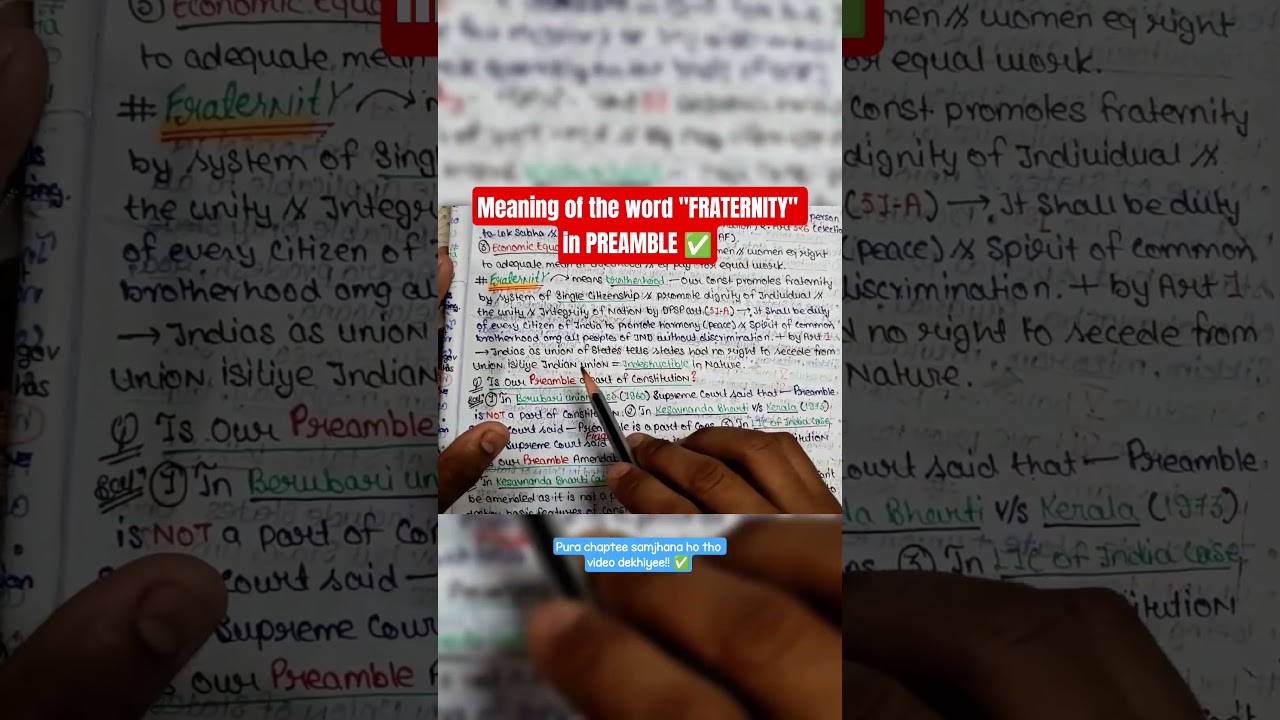 Meaning of the word "FRATERNITY"
in PREAMBLE ✅
person
to Lok Sabha &
③ Economic Equa men & women eq right
to adequate mea for equal work.
# Fraternity → means brotherhood — our const promotes fraternity
by system of Single Citizenship & promote dignity of Individual &
the unity & Integrity of Nation by DPSP art (51-A) → It shall be duty
of every citizen of India to promote harmony (peace) & Spirit of common
brotherhood amg all peoples of IND without discrimination. + by Art 1
→ Indias as union of States tells states had no right to secede from
union isiliye Indian union = Indestructible in Nature.
Q Is Our Preamble a part of Constitution?
Sol ① In Berubari union case (1960) Supreme Court said that — Preamble
is NOT a part of Constitution. ② In Kesavnanda Bharti v/s Kerala (1973)
Court said — Preamble is a part of Cons ③ In LIC of India Case,
Supreme Court said
is our Preamble Amendab
In Kesavnanda Bharti Ca
be amended as it is not a p
basic features of const
Pura chaptee samjhana ho tho
video dekhiyee!! ✅